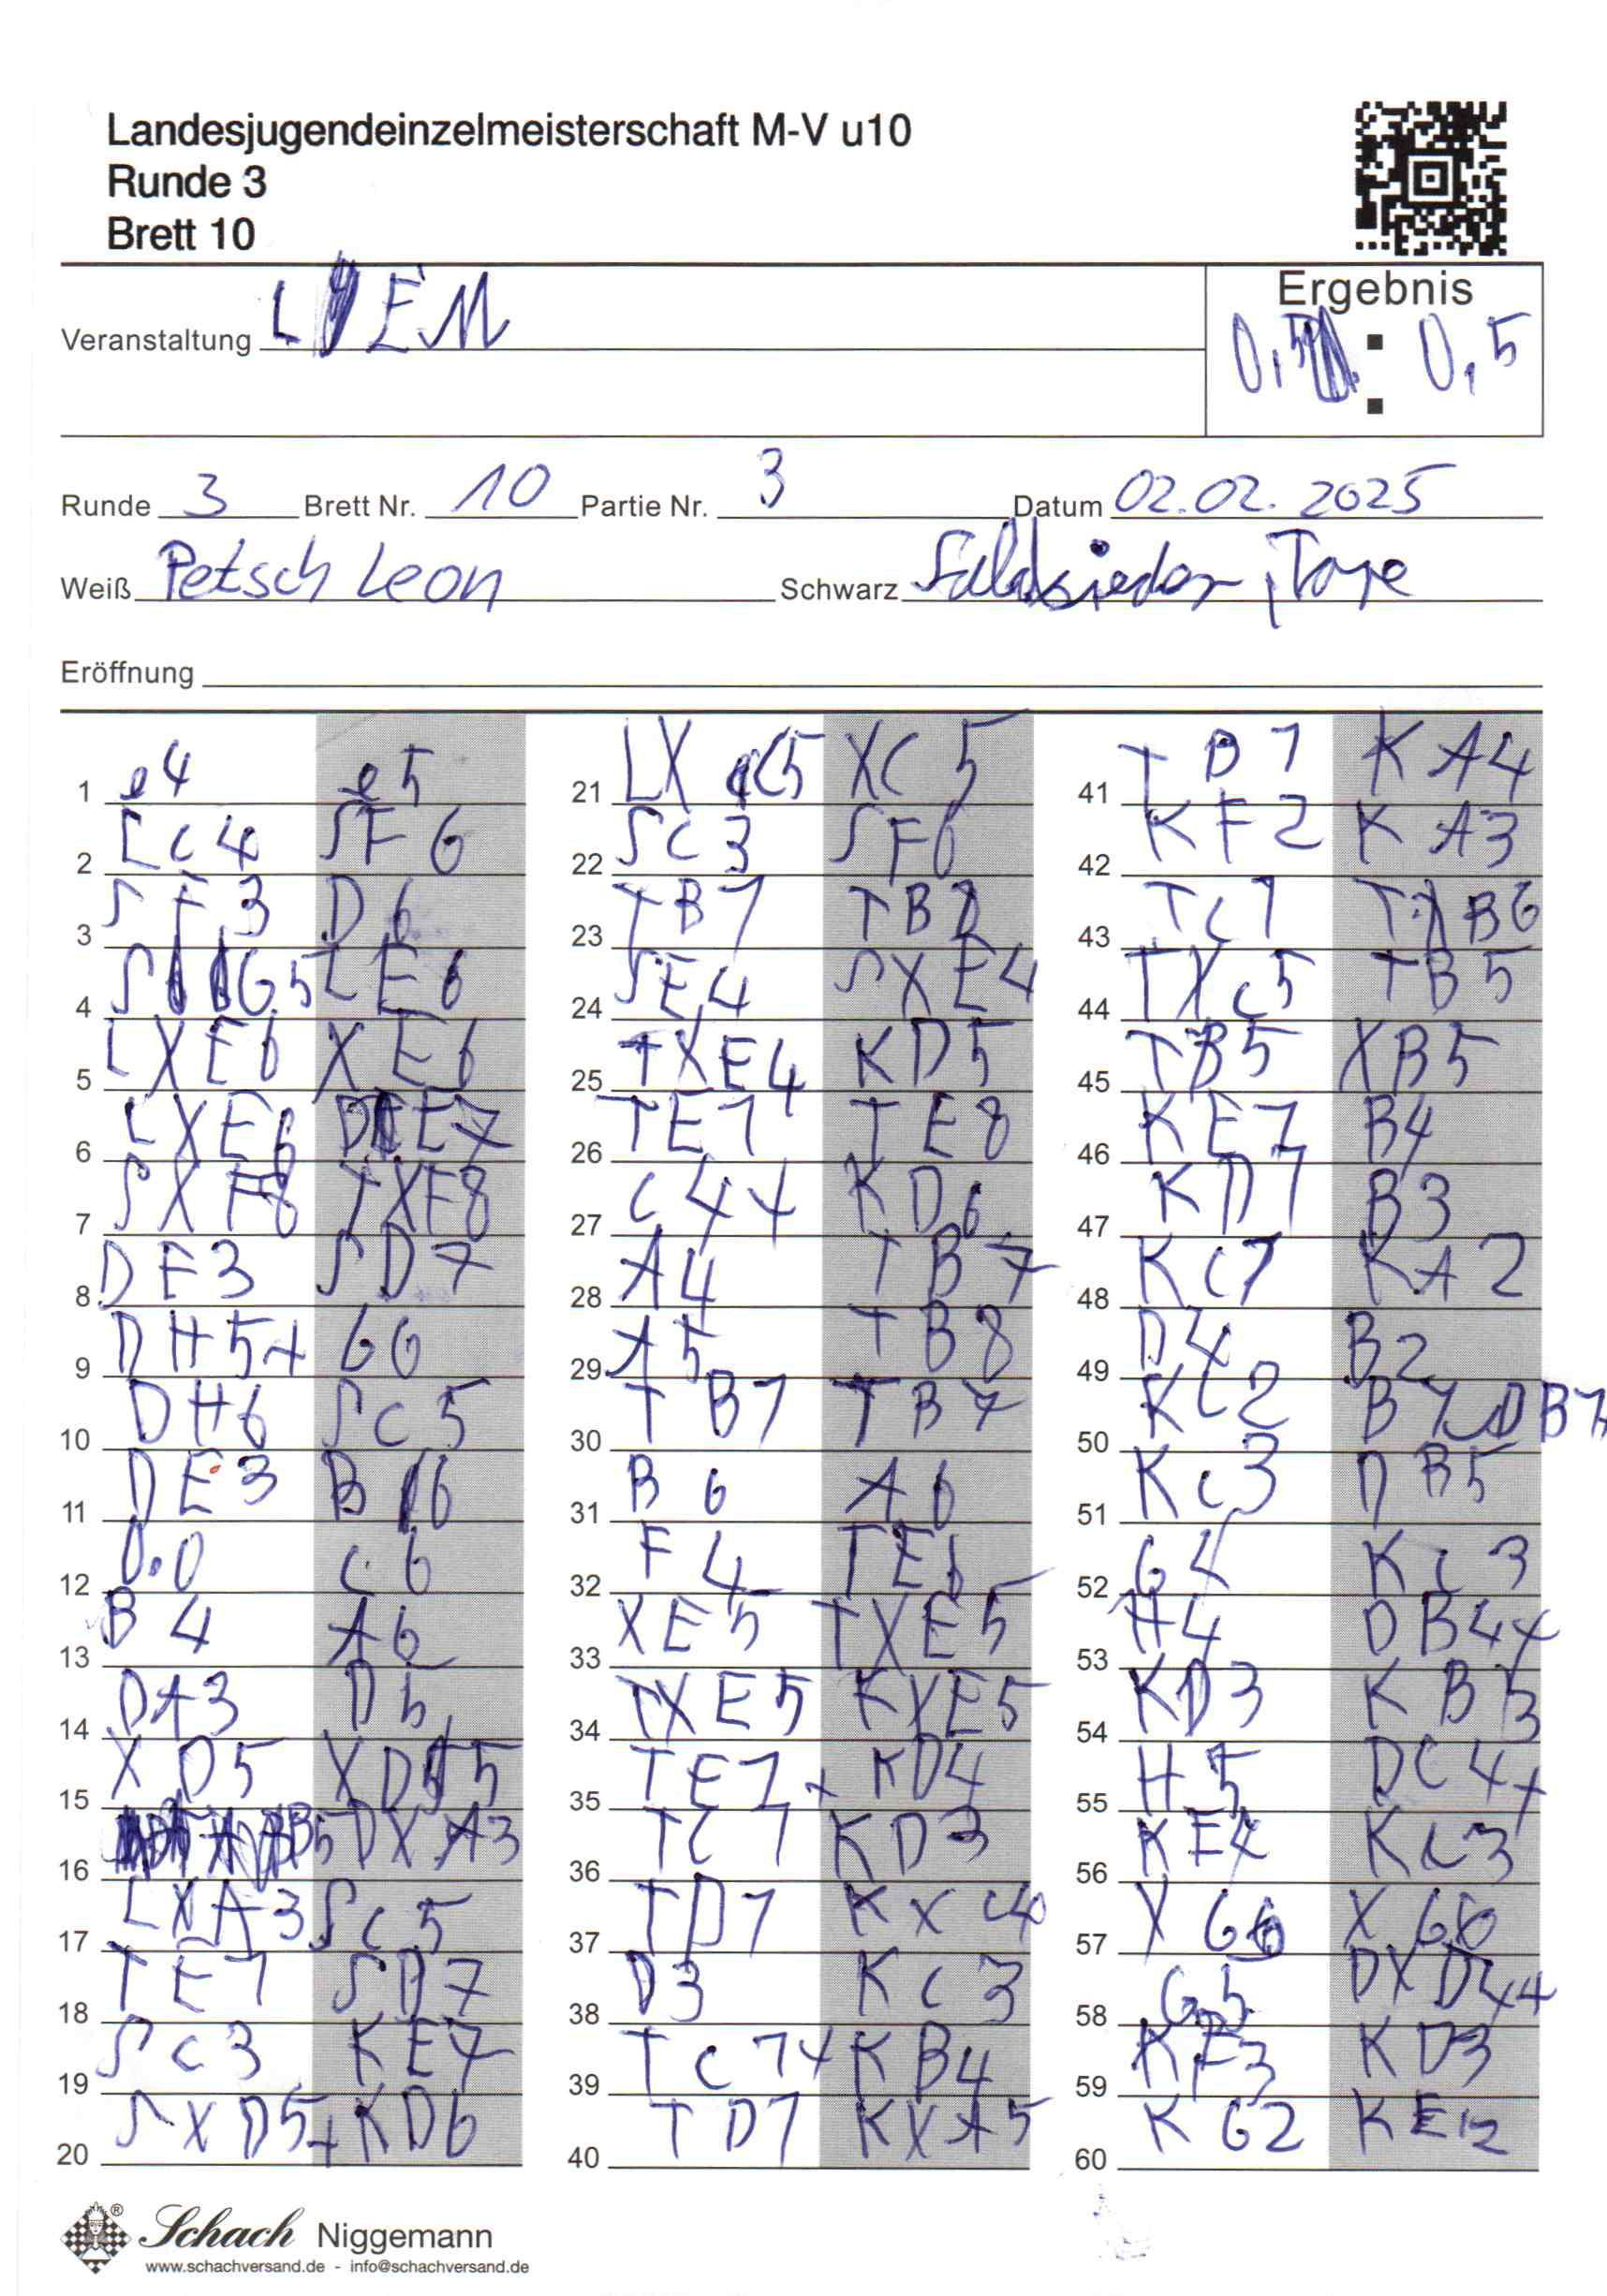 Landesjugendeinzelmeisterschaft M-V u10
Runde 3
Brett 10
Ergebnis
Veranstaltung L EM
0,5 : 0,5
Runde 3 Brett Nr. 10 Partie Nr. 3 Datum 02.02.2025
Weiß Petsch Leon Schwarz
Eröffnung
1 e4 e5
2 Lc4 SF6
3 SF3 D6
4 SG5 LE6
5 LXE6 XE6
6 LXE6 DE7
7 SXF8 TXF8
8 DF3 SD7
9 DH5+ G6
10 DH6 SC5
11 DE3 B6
12 0.0 C6
13 B4 A6
14 DA3 D5
15 XD5 XD5
16 B5 DXA3
17 LXA3 SC5
18 TE1 SD7
19 SC3 KE7
20 SXD5+ KD6
21 LXC5 XC5
22 SC3 SF6
23 TB1 TB8
24 SE4 SXE4
25 TXE4 KD5
26 TE1 TE8
27 C4+ KD6
28 A4 TB7
29 A5 TB8
30 TB1 TB7
31 B6 A6
32 F4 TE6
33 XE5 TXE5
34 TXE5 KXE5
35 TE1+ KD4
36 TC1 KD3
37 TD1 KXC4
38 D3 KC3
39 TC1+ KB4
40 TD1 KXA5
41 TB1 KA4
42 KF2 KA3
43 TC1 TXB6
44 TXC5 TB5
45 TB5 XB5
46 KE1 B4
47 KD1 B3
48 KC1 KA2
49 D4 B2
50 KC2 B1DB1
51 KC3 DB5
52 G4 KC3
53 H4 DB4+
54 KD3 KB3
55 H5 DC4+
56 KE4 KC3
57 XG6 XG6
58 G5 DXD4+
59 KF3 KD3
60 KG2 KE2
Schach Niggemann
www.schachversand.de - info@schachversand.de